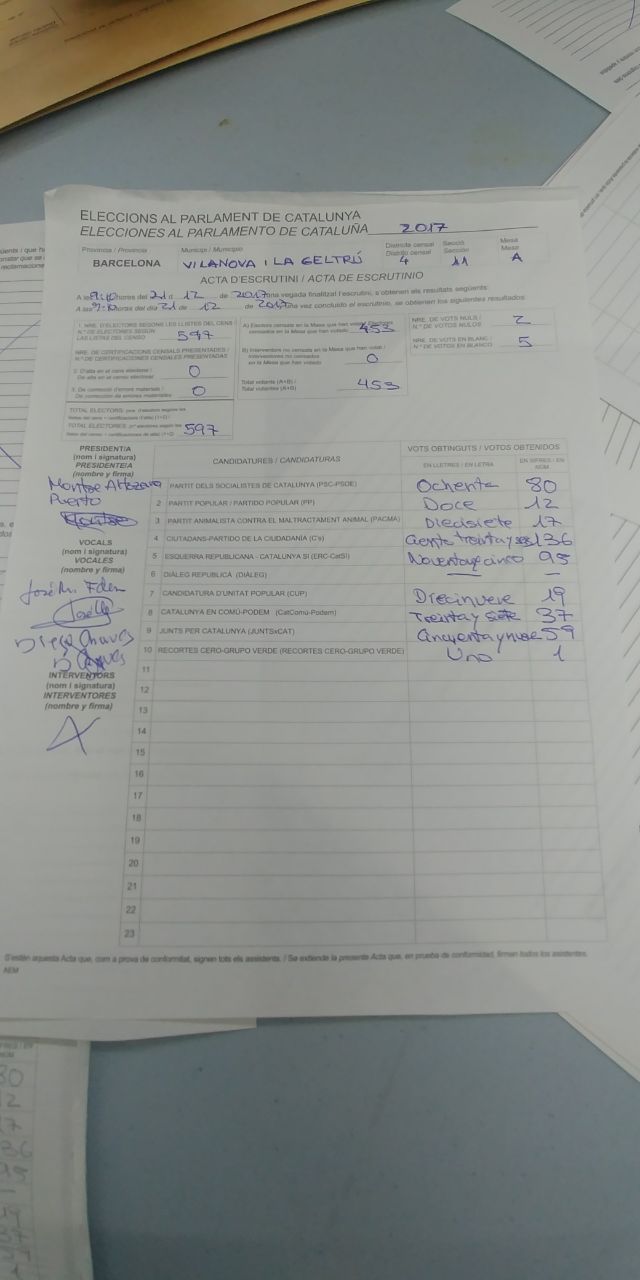 ELECCIONS AL PARLAMENT DE CATALUNYA
ELECCIONES AL PARLAMENTO DE CATALUÑA 2017
Provincia / Provincia Municipi / Municipio Districte censal Secció Mesa
Distrito censal Sección Mesa
BARCELONA VILANOVA I LA GELTRÚ 4 11 A
ACTA D'ESCRUTINI / ACTA DE ESCRUTINIO
A les hores del 21 d 12 de 2017 una vegada finalitzat l'escrutini, s'obtenen els resultats següents:
A las horas del día 21 de 12 de 2017 una vez concluido el escrutinio, se obtienen los siguientes resultados:
1. NRE. D'ELECTORS SEGONS LES LLISTES DEL CENS /
N.º DE ELECTORES SEGÚN
LAS LISTAS DEL CENSO 597
NRE. DE CERTIFICACIONS CENSALS PRESENTADES /
N.º DE CERTIFICACIONES CENSALES PRESENTADAS
2. D'alta en el cens electoral /
De alta en el censo electoral 0
3. De correcció d'errors materials /
De corrección de errores materiales 0
TOTAL ELECTORS
TOTAL ELECTORES 597
A) Electors censats en la Mesa que han votat
censados en la Mesa que han votado 453
B) Interventors no censats en la Mesa que han votat /
Interventores no censados
en la Mesa que han votado 0
Total votants (A+B) /
Total votantes (A+B) 453
NRE. DE VOTS NULS /
N.º DE VOTOS NULOS 2
NRE. DE VOTS EN BLANC /
N.º DE VOTOS EN BLANCO 5
PRESIDENT/A
(nom i signatura)
PRESIDENTE/A
(nombre y firma)
Montse
Puerto
VOCALS
(nom i signatura)
VOCALES
(nombre y firma)
José M.
Diego Chaves
INTERVENTORS
(nom i signatura)
INTERVENTORES
(nombre y firma)
CANDIDATURES / CANDIDATURAS VOTS OBTINGUTS / VOTOS OBTENIDOS
EN LLETRES / EN LETRA EN XIFRES / EN NÚM.
1 PARTIT DELS SOCIALISTES DE CATALUNYA (PSC-PSOE) Ochenta 80
2 PARTIT POPULAR / PARTIDO POPULAR (PP) Doce 12
3 PARTIT ANIMALISTA CONTRA EL MALTRACTAMENT ANIMAL (PACMA) Diecisiete 17
4 CIUTADANS-PARTIDO DE LA CIUDADANÍA (C's) Ciento treinta y seis 136
5 ESQUERRA REPUBLICANA - CATALUNYA SÍ (ERC-CatSí) Noventa y cinco 95
6 DIÀLEG REPUBLICÀ (DIÀLEG) — —
7 CANDIDATURA D'UNITAT POPULAR (CUP) Diecinueve 19
8 CATALUNYA EN COMÚ-PODEM (CatComú-Podem) Treinta y siete 37
9 JUNTS PER CATALUNYA (JUNTSxCAT) Cincuenta y nueve 59
10 RECORTES CERO-GRUPO VERDE (RECORTES CERO-GRUPO VERDE) Uno 1
11
12
13
14
15
16
17
18
19
20
21
22
23
S'estén aquesta Acta que, com a prova de conformitat, signen tots els assistents. / Se extiende la presente Acta que, en prueba de conformidad, firman todos los asistentes.
AEM